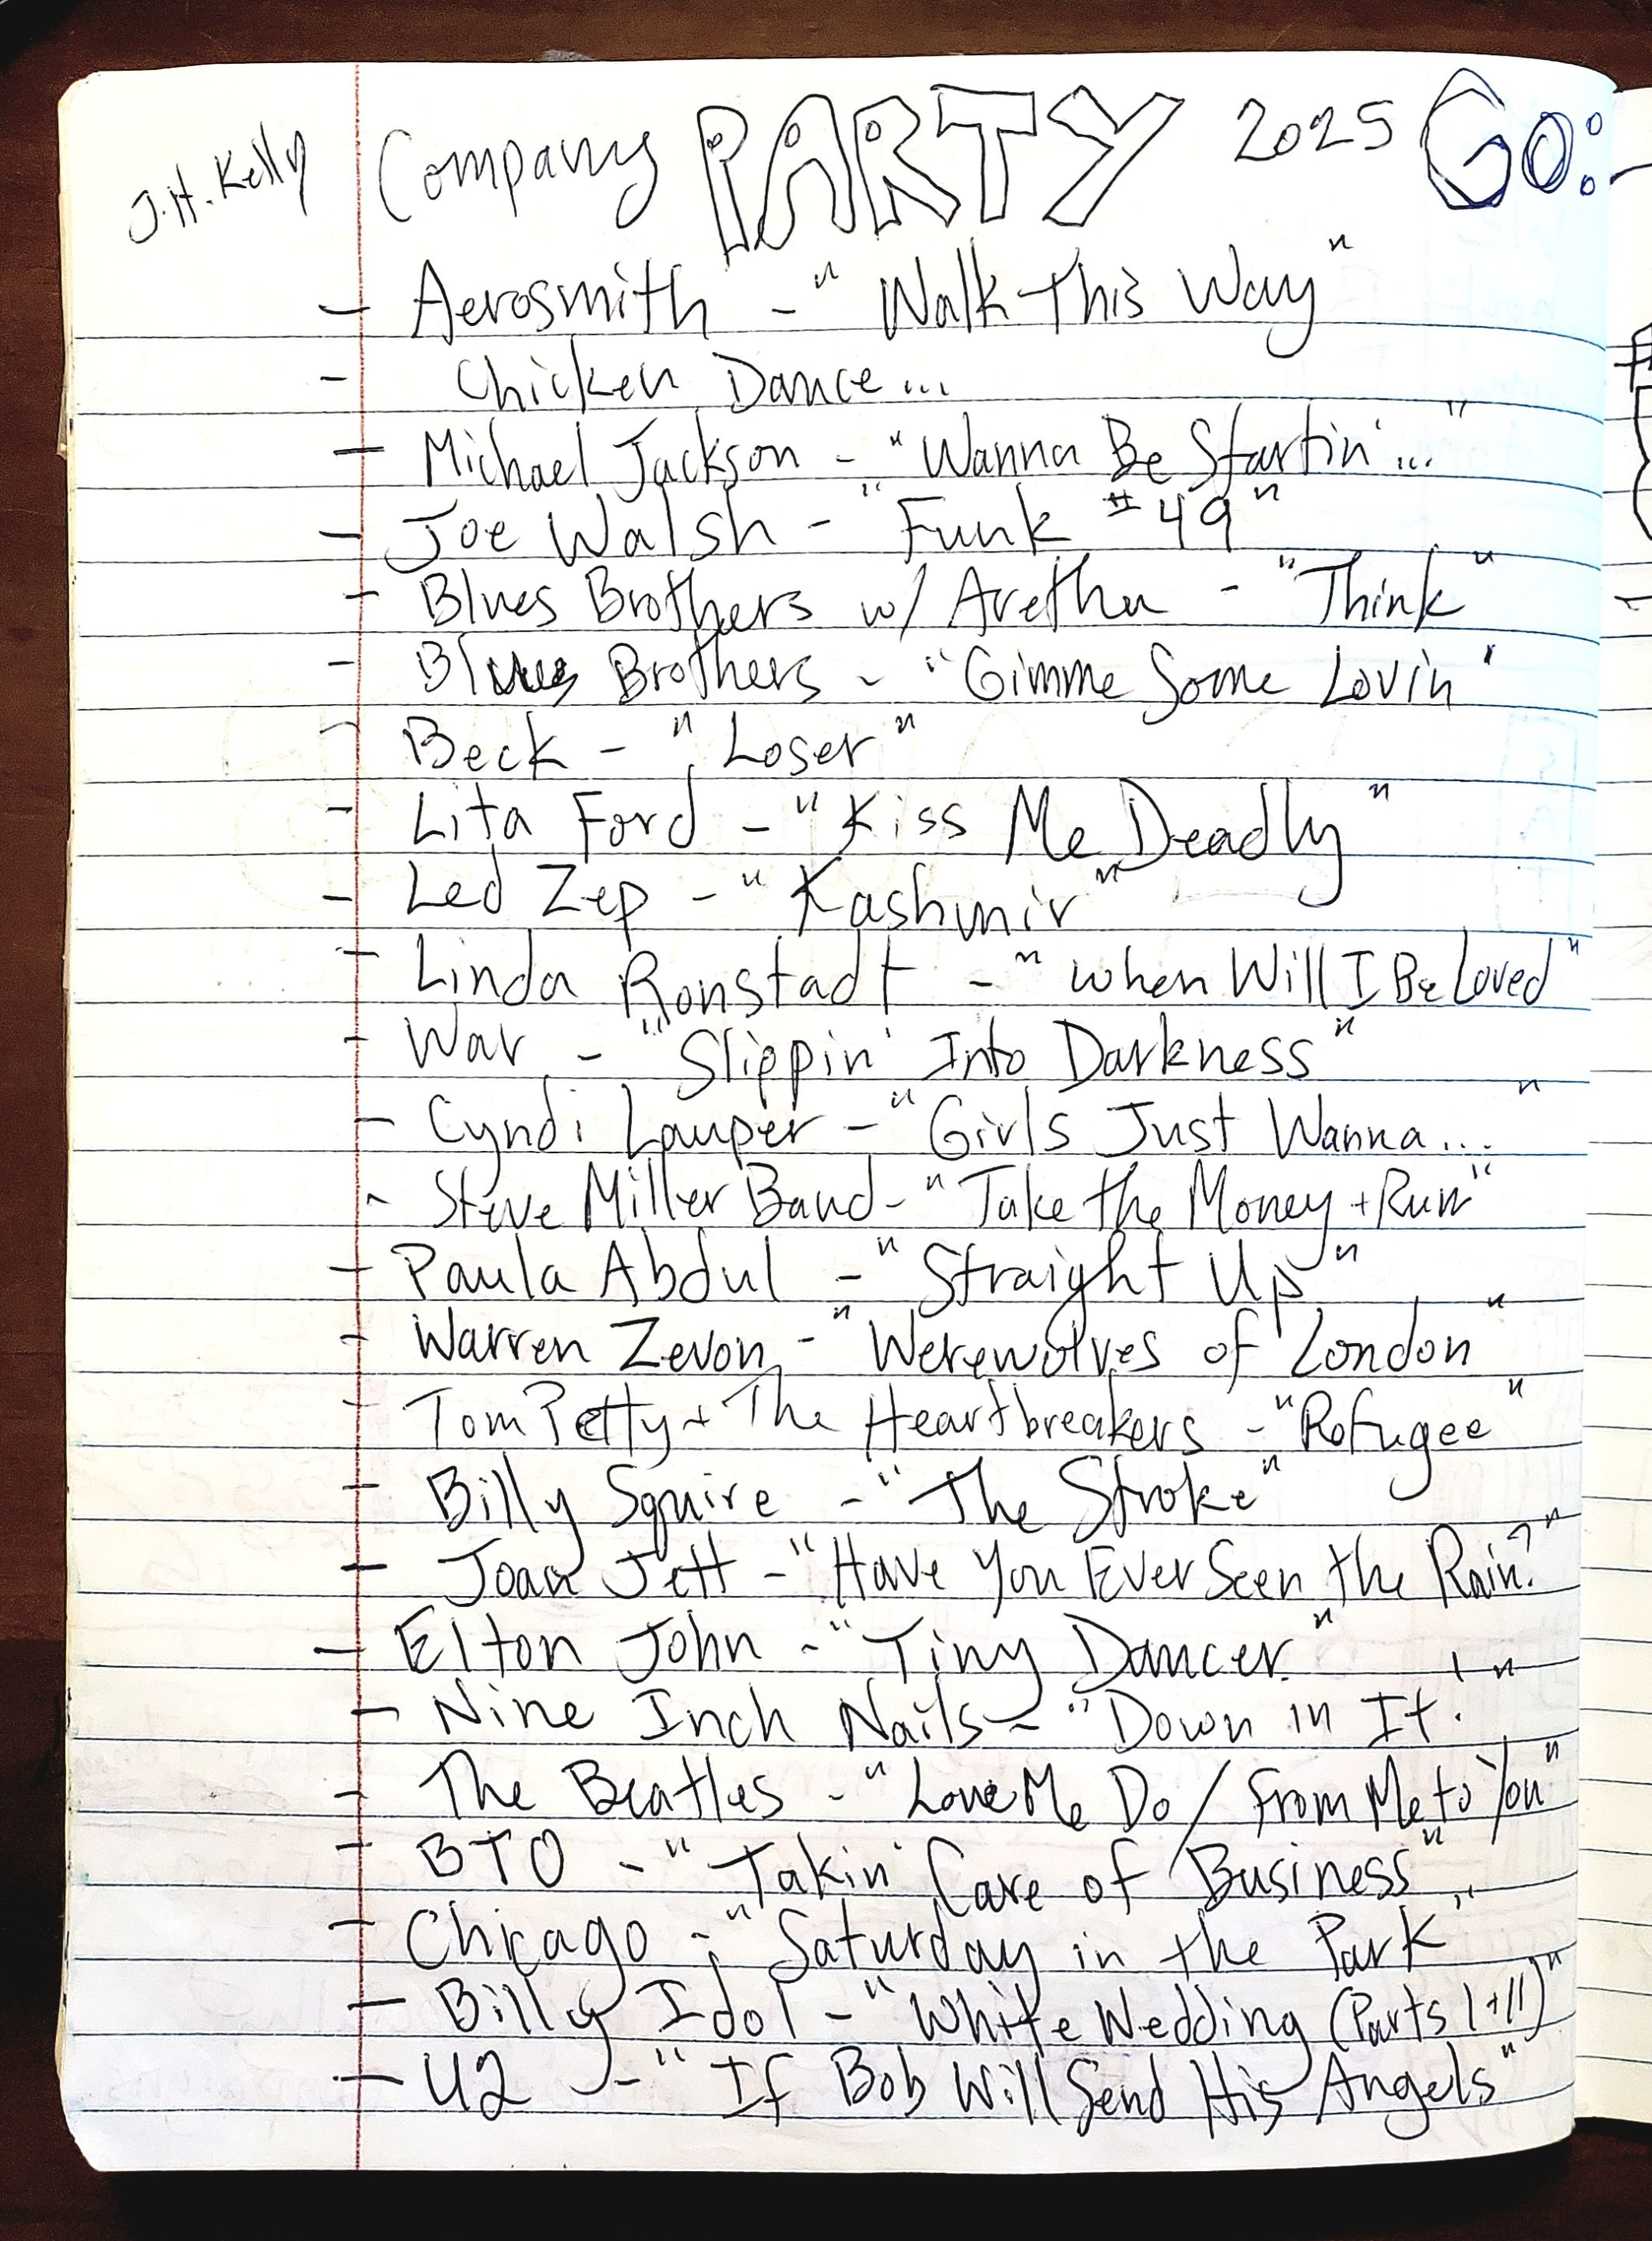 J.H. Kelly Company PARTY 2025 GO:
- Aerosmith - "Walk This Way"
- Chicken Dance...
- Michael Jackson - "Wanna Be Startin'..."
- Joe Walsh - "Funk #49"
- Blues Brothers w/ Aretha - "Think"
- Blues Brothers - "Gimme Some Lovin'"
- Beck - "Loser"
- Lita Ford - "Kiss Me Deadly"
- Led Zep - "Kashmir"
- Linda Ronstadt - "When Will I Be Loved"
- War - "Slippin' Into Darkness"
- Cyndi Lauper - "Girls Just Wanna..."
- Steve Miller Band - "Take the Money + Run"
- Paula Abdul - "Straight Up"
- Warren Zevon - "Werewolves of London"
- Tom Petty + The Heartbreakers - "Refugee"
- Billy Squire - "The Stroke"
- Joan Jett - "Have You Ever Seen the Rain?"
- Elton John - "Tiny Dancer"
- Nine Inch Nails - "Down in It!"
- The Beatles - "Love Me Do / From Me to You"
- BTO - "Takin' Care of Business"
- Chicago - "Saturday in the Park"
- Billy Idol - "White Wedding (Parts I + II)"
- U2 - "If Bob Will Send His Angels"